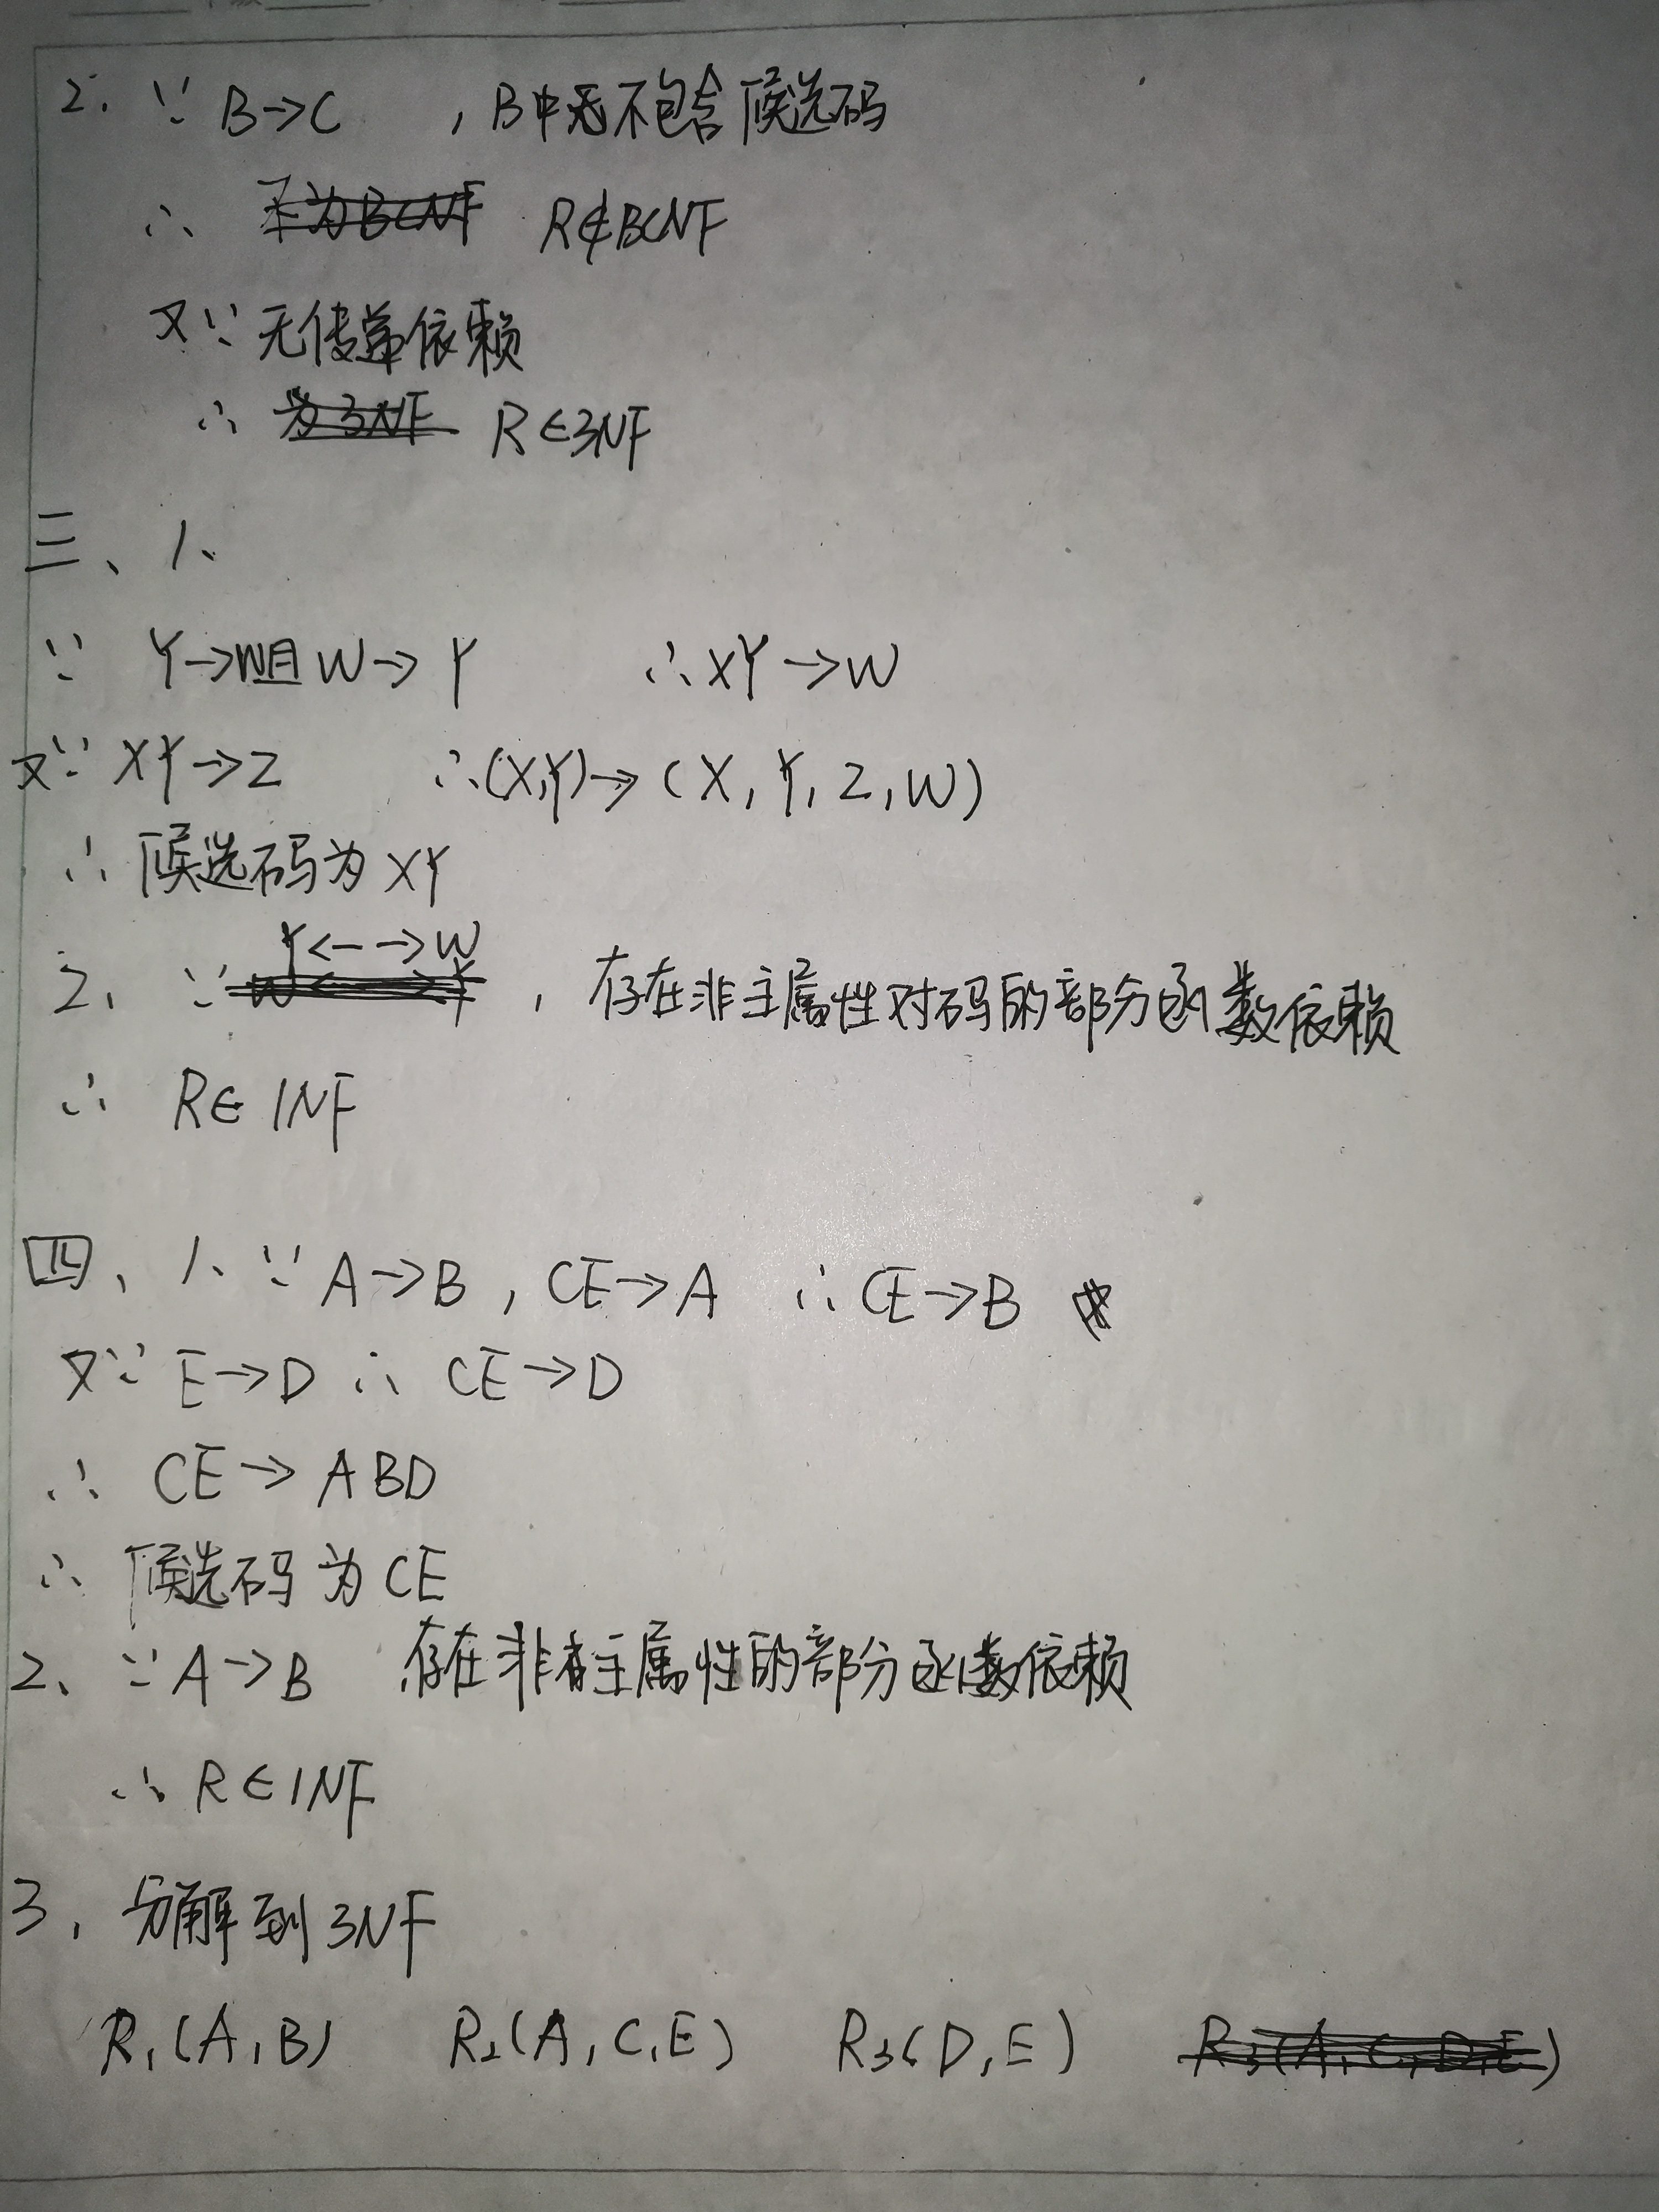 2. ∵ B→C , B中不包含候选码
∴ R∉BCNF
又∵ 无传递依赖
∴ R∈3NF
三、1、
∵ Y→W且W→Y ∴XY→W
又∵ XY→Z ∴(X,Y)→(X, Y, Z, W)
∴ 候选码为XY
2、∵ Y<--→W , 存在非主属性对码的部分函数依赖
∴ R∈1NF
四、1、∵ A→B, CE→A ∴ CE→B
又∵ E→D ∴ CE→D
∴ CE→ABD
∴ 候选码为CE
2、∵ A→B 存在非主属性的部分函数依赖
∴ R∈1NF
3、分解到3NF
R₁(A,B) R₂(A,C,E) R₃(D,E)